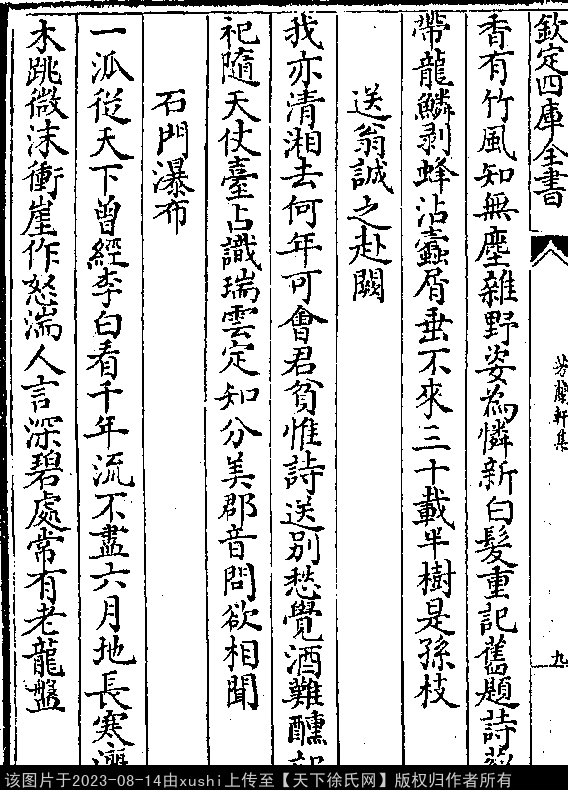 欽定四庫全書
芳蘭軒集
九
香有竹風知無塵雜野姿為憐新白髮重記舊題詩
帶龍鱗剥蜂沾蠧屑垂不來三十載半樹是孫枝
送翁誠之赴闕
我亦清湘去何年可會君貧惟詩送别愁覺酒難醺
祀隨天仗臺占識瑞雲定知分美郡音問欲相聞
石門瀑布
一派從天下曾經李白看千年流不盡六月地長寒
木跳微沫衝崖作怒湍人言深碧處常有老龍盤
该图片于2023-08-14由xushi上传至【天下徐氏网】版权归作者所有